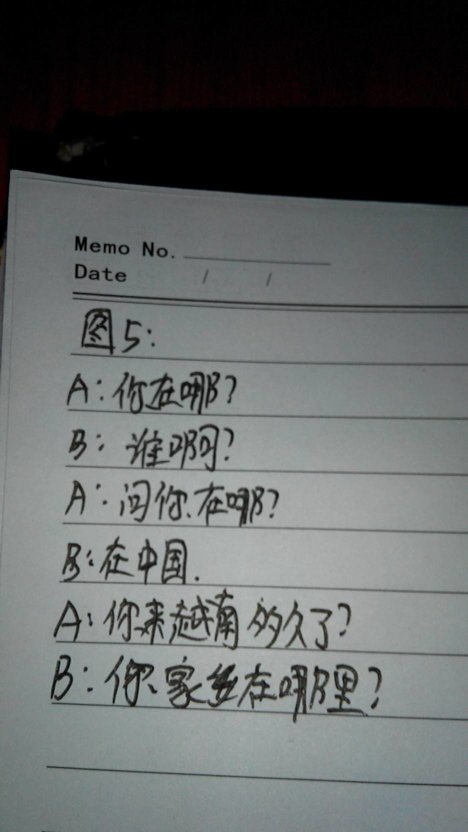 Memo No.
Date / /
图5:
A:你在哪?
B:谁啊?
A:问你.在哪?
B:在中国.
A:你来越南多久了?
B:你家在哪里?